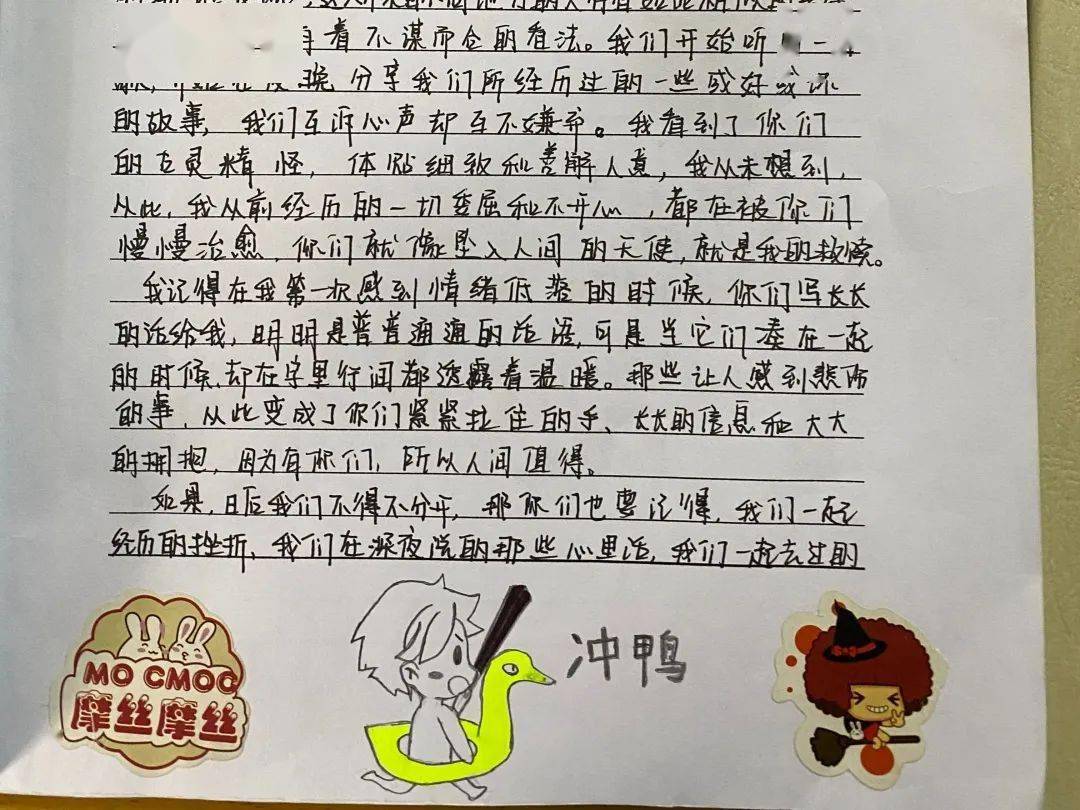 着不谋而合的看法。我们开始听
晚分享我们所经历过的一些或好或坏
的故事，我们互诉心声却互不嫌弃。我看到了你们
的古灵精怪，体贴细致和善解人意，我从未想到，
从此，我从前经历的一切委屈和不开心，都在被你们
慢慢治愈，你们就像坠入人间的天使，就是我的救赎。
我记得在我第一次感到情绪低落的时候，你们写长长
的话给我，明明是普普通通的话语，可是当它们凑在一起
的时候，却在字里行间都透露着温暖。那些让人感到悲伤
的事，从此变成了你们紧紧拉住的手、长长的信息和大大
的拥抱，因为有你们，所以人间值得。
如果，日后我们不得不分开，那你们也要记得，我们一起
经历的挫折、我们在深夜说的那些心里话，我们一起去过的
冲鸭
MO CMOC
摩丝摩丝